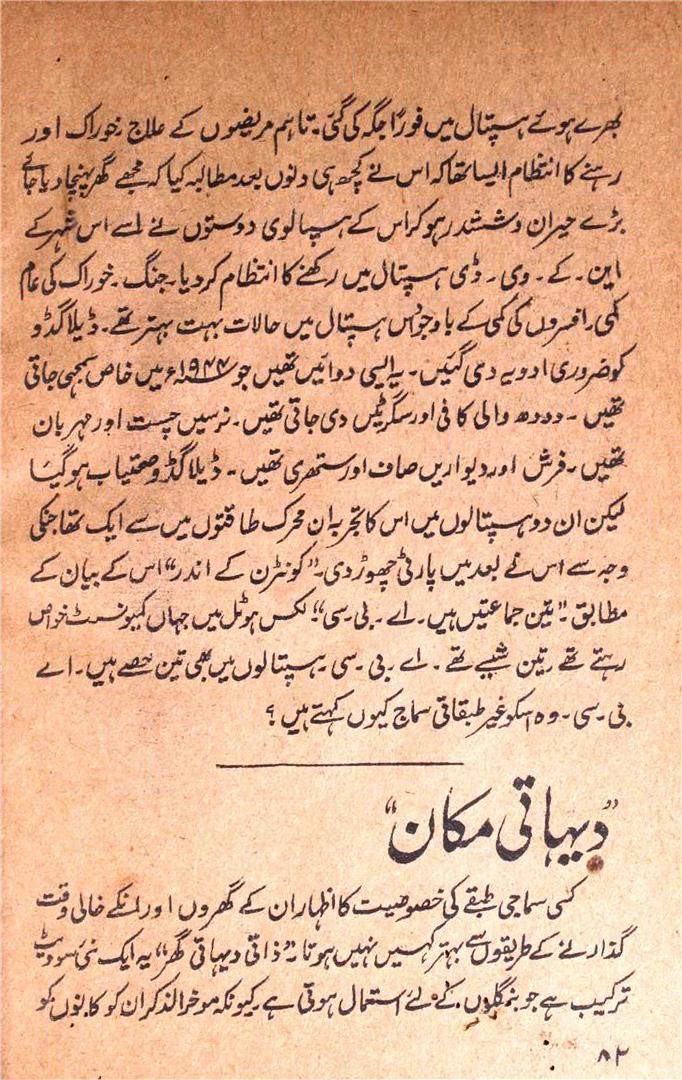 بھرے ہوئے ہسپتال میں فوراً جگہ کی گئی۔ تاہم مریضوں کے علاج خوراک اور
رہنے کا انتظام ایسا تھا کہ اس نے کچھ ہی دنوں بعد مطالبہ کیا کہ مجھے گھر پہنچا دیا جائے
بڑے حیران و ششدر ہو کر اس کے ہسپالوی دوستوں نے اسے اس شہر کے
این۔ کے۔ وی۔ ڈی ہسپتال میں رکھنے کا انتظام کر دیا۔ جنگ۔ خوراک کی عام
کمی، افسروں کی کمی کے باوجود اس ہسپتال میں حالات بہت بہتر تھے۔ ڈیلاگڈو
کو ضروری ادویہ دی گئیں۔ یہ ایسی دوائیں تھیں جو ۱۹۴۴ء میں خاص سمجھی جاتی
تھیں۔ دودھ والی کافی اور سگرٹیں دی جاتی تھیں۔ نرسیں چست اور مہربان
تھیں۔ فرش اور دیواریں صاف اور ستھری تھیں۔ ڈیلاگڈو صحتیاب ہو گیا
لیکن ان دو ہسپتالوں میں اس کا تجربہ ان محرک طاقتوں میں سے ایک تھا جنکی
وجہ سے اس نے بعد میں پارٹی چھوڑ دی۔ "کونٹرن کے اندر" اس کے بیان کے
مطابق۔ "تین جماعتیں ہیں۔ اے۔ بی۔ سی"۔ لکس ہوٹل میں جہاں کمیونسٹ خواص
رہتے تھے، تین شعبے تھے۔ اے۔ بی۔ سی ہسپتالوں میں بھی تین حصے ہیں۔ اے
بی۔ سی۔ وہ اسکو غیر طبقاتی سماج کیوں کہتے ہیں؟
"دیہاتی مکان"
کسی سماجی طبقے کی خصوصیت کا اظہار ان کے گھروں اور انکے خالی وقت
گذارنے کے طریقوں سے بہتر کہیں نہیں ہوتا۔ "ذاتی دیہاتی گھر" یہ ایک نئی سوویٹ
ترکیب ہے جو بنگلوں کے لئے استعمال ہوتی ہے۔ کیونکہ موخرالذکر ان کو کانوں کو
۸۲